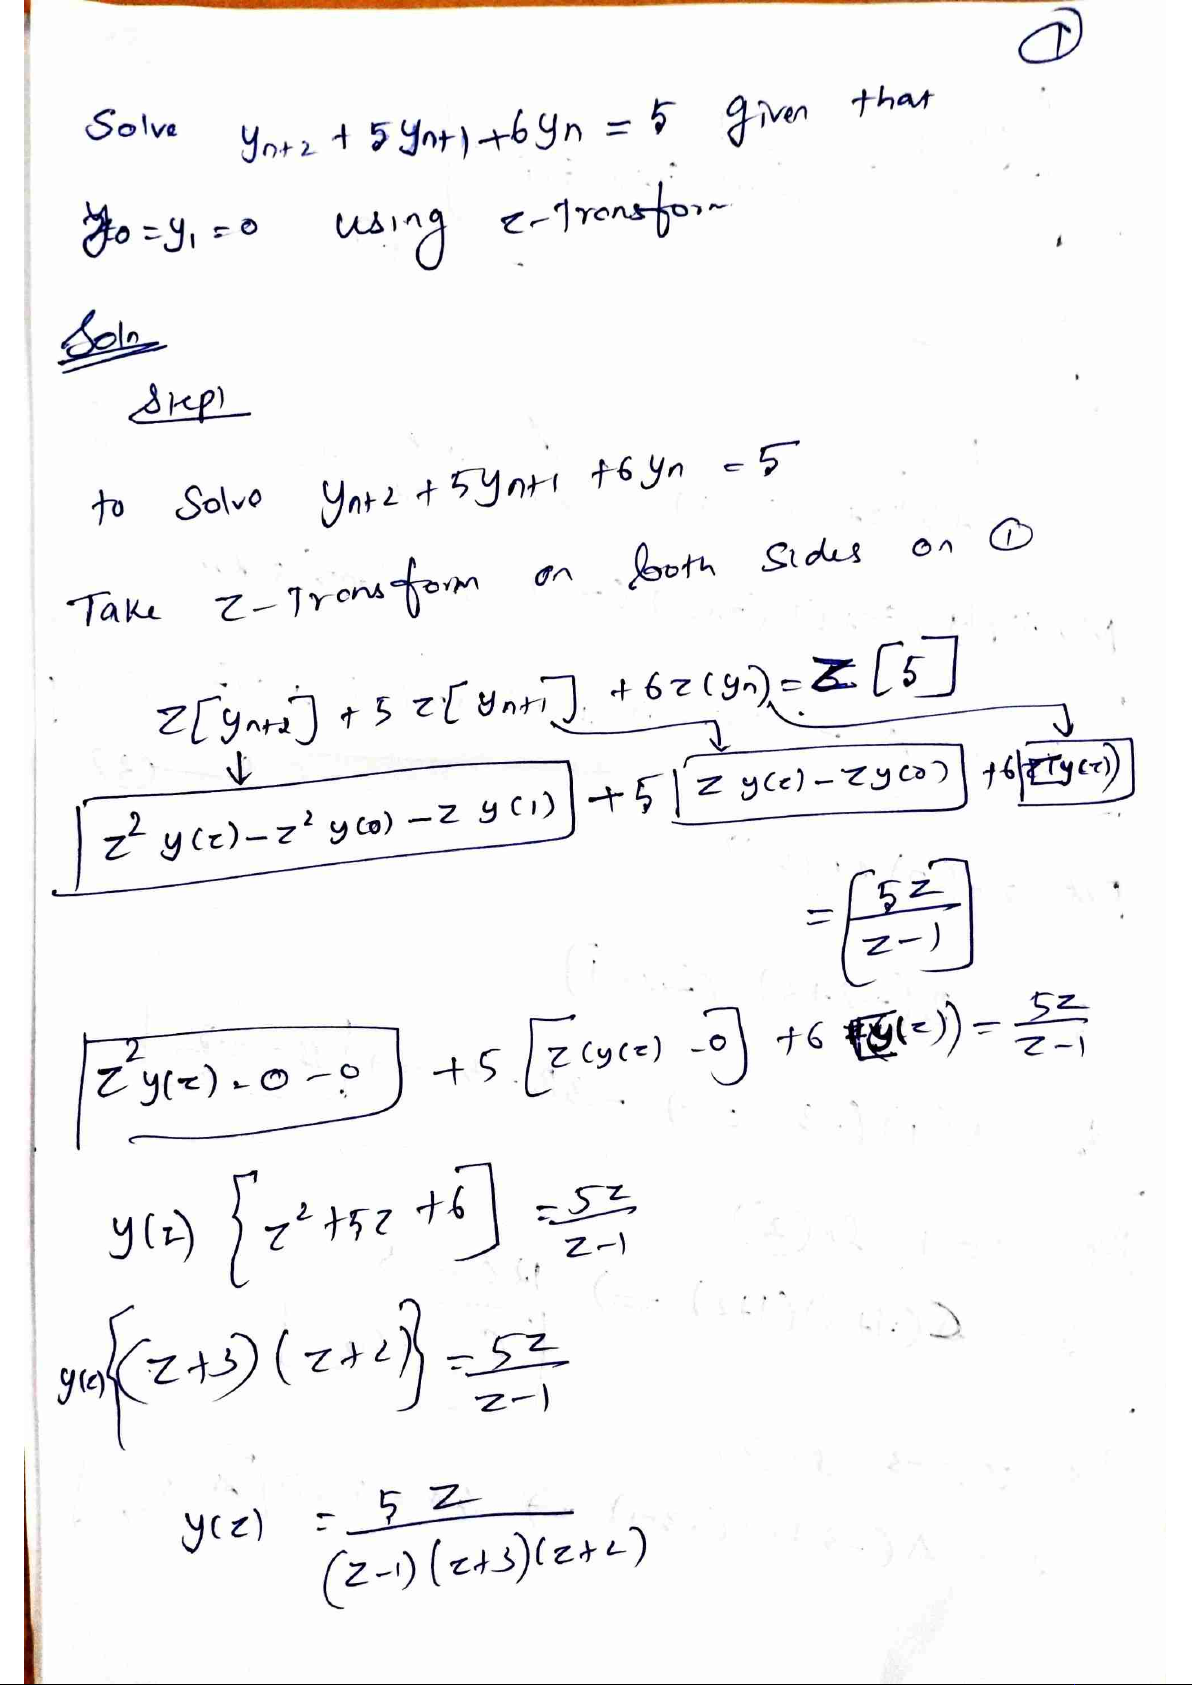 ①
Solve yn+2 + 5yn+1 + 6yn = 5 given that
y0 = y1 = 0 using z-Transform
Soln
Step1
to Solve yn+2 + 5yn+1 + 6yn = 5
Take z-Transform on both sides on ①
z[yn+2] + 5 z[yn+1] + 6z(yn) = z[5]
[z² y(z) - z² y(0) - z y(1)] + 5[z y(z) - z y(0)] + 6[z(y(z))]
= [5z/(z-1)]
[z² y(z) - 0 - 0] + 5[z(y(z) - 0] + 6 (y(z)) = 5z/(z-1)
y(z) {z² + 5z + 6] = 5z/(z-1)
y(z){(z+3)(z+2)} = 5z/(z-1)
y(z) = 5z/((z-1)(z+3)(z+2))